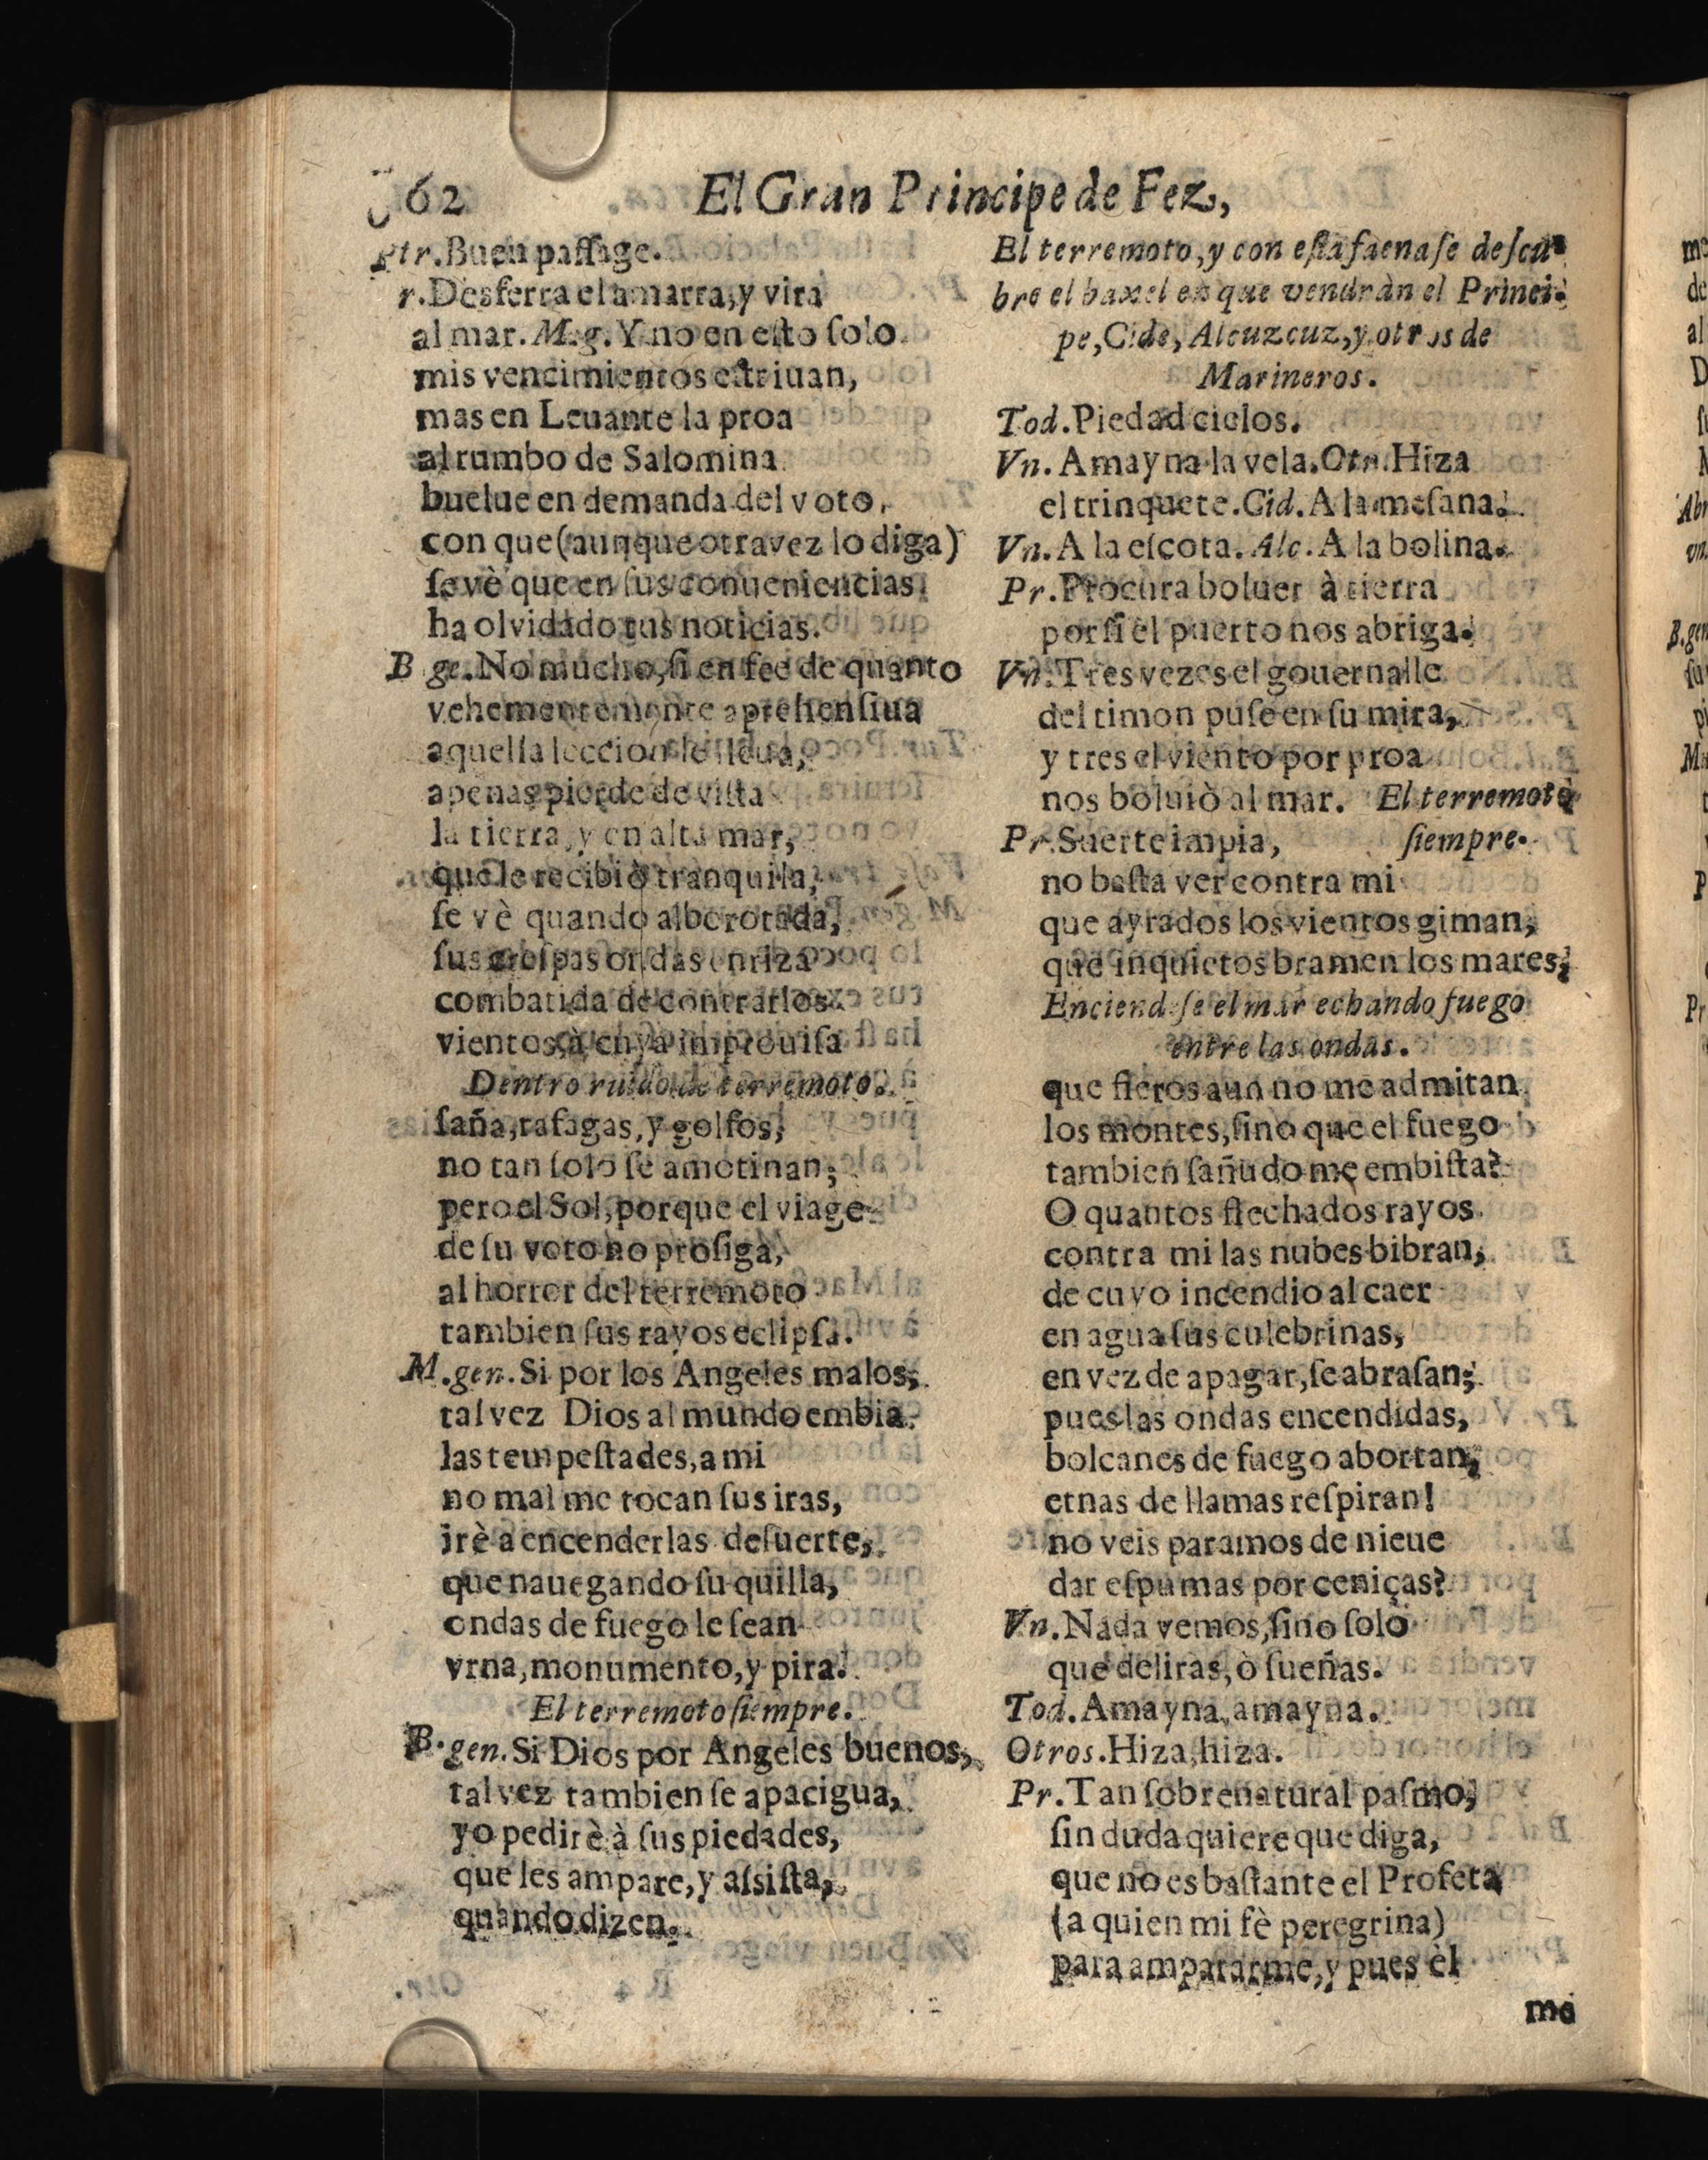 62 El Gran Principe de Fez,
Otr. Buen passage.
r. Desferra el amarra, y vira
al mar. M.g. Y no en esto solo
mis vencimientos estriuan,
mas en Leuante la proa
al rumbo de Salomina
buelue en demanda del voto,
con que (aunque otra vez lo diga)
se vè que en sus conueniencias
ha olvidado tus noticias.
B ge. No mucho, si en fee de quanto
vehementemente aprehensiua
aquella leccion le lleua,
apenas pierde de vista
la tierra, y en alta mar,
que le recibiò tranquila,
se vè quando alborotada,
sus crespas ondas enriza
combatida de contrarios
vientos, à cuya improuisa
Dentro ruido de terremoto.
saña, rafagas, y golfos,
no tan solo se amotinan;
pero el Sol, porque el viage
de su voto no prosiga,
al horror del terremoto
tambien sus rayos eclipsa.
M.gen. Si por los Angeles malos,
tal vez Dios al mundo embia
las tempestades, a mi
no mal me tocan sus iras,
irè a encenderlas de suerte,
que nauegando su quilla,
ondas de fuego le sean
vrna, monumento, y pira.
El terremoto siempre.
B.gen. Si Dios por Angeles buenos,
tal vez tambien se apacigua,
yo pedirè à sus piedades,
que les ampare, y assista,
quando dizen.
El terremoto, y con esta faena se descu-
bre el baxel en que vendràn el Princi-
pe, Cide, Alcuzcuz, y otros de
Marineros.
Tod. Piedad cielos.
Vn. Amayna la vela. Otr. Hiza
el trinquete. Cid. A la mesana.
Vn. A la escota. Alc. A la bolina.
Pr. Procura boluer à tierra
por si el puerto nos abriga.
Vn. Tres vezes el gouernalle
del timon puse en su mira,
y tres el viento por proa
nos boluiò al mar. El terremoto
Pr. Suerte impia, siempre.
no basta ver contra mi
que ayrados los vientos giman,
que inquietos bramen los mares,
Enciendase el mar echando fuego
entre las ondas.
que fieros aun no me admitan
los montes, sino que el fuego
tambien sañudo me embista?
O quantos flechados rayos
contra mi las nubes bibran,
de cuyo incendio al caer
en agua sus culebrinas,
en vez de apagar, se abrasan;
pues las ondas encendidas,
bolcanes de fuego abortan,
etnas de llamas respiran!
no veis paramos de nieue
dar espumas por ceniças?
Vn. Nada vemos, sino solo
que deliras, ò sueñas.
Tod. Amayna, amayna.
Otros. Hiza, hiza.
Pr. Tan sobrenatural pasmo,
sin duda quiere que diga,
que no es bastante el Profeta
(a quien mi fè peregrina)
para ampararme, y pues èl
me